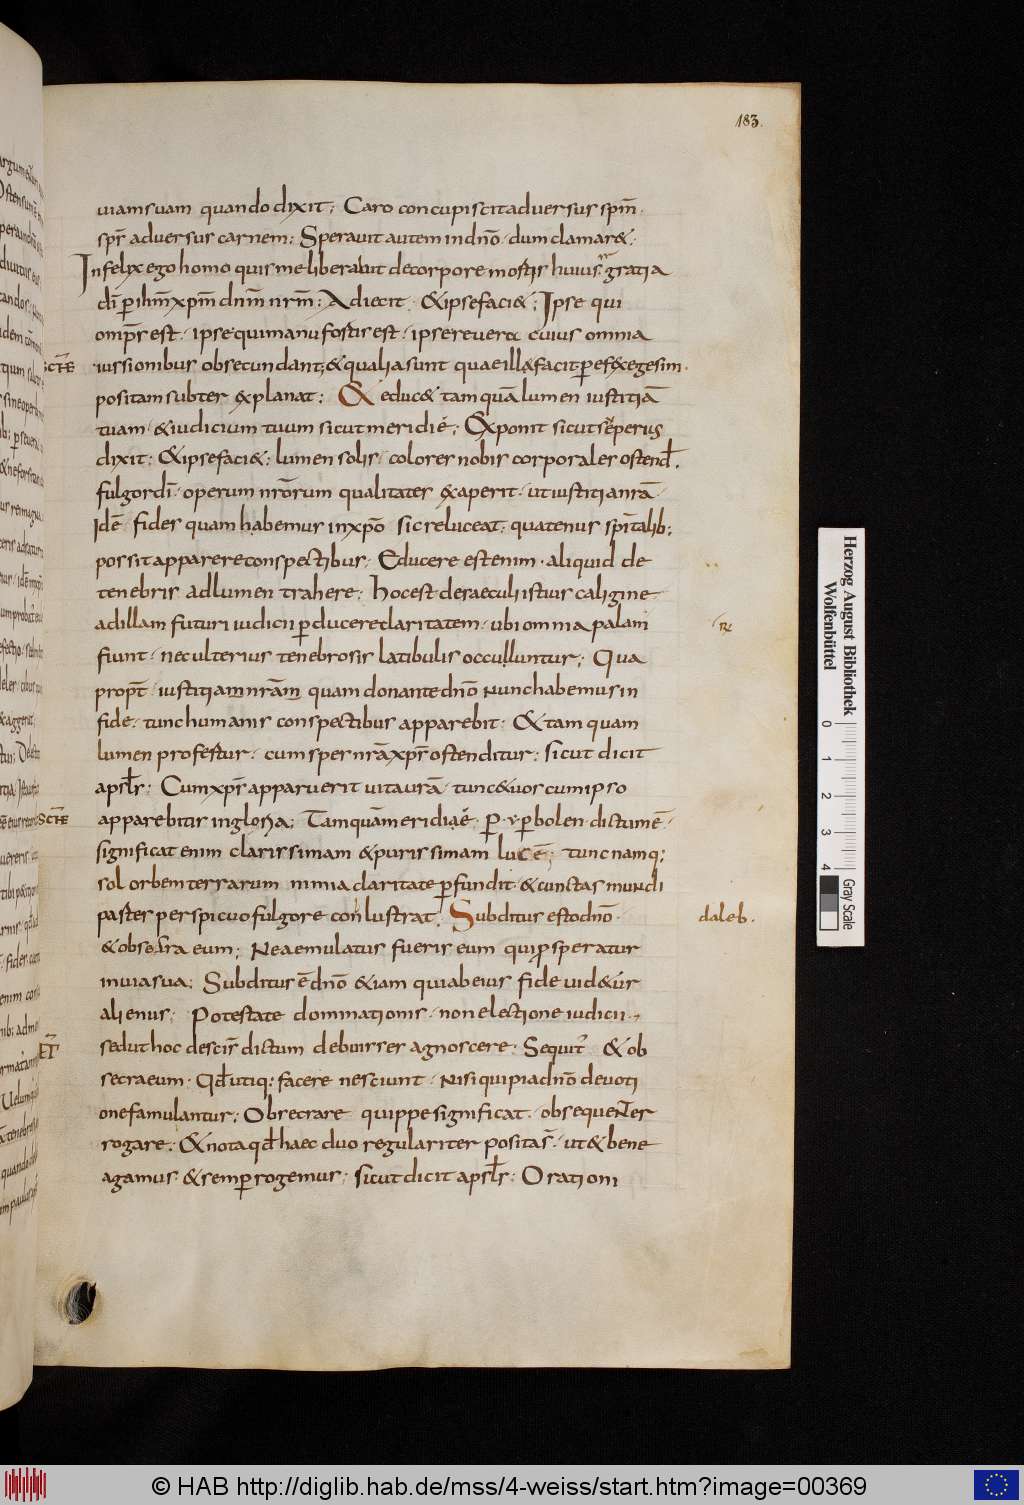 183.
uiam suam quando dixit; Caro concupiscit aduersus spm̄.
sps̄ aduersus carnem; Sperauit autem in dnō. dum clamar&;
Infelix ego homo quis me liberabit de corpore mortis huius. gratia
dī ꝑ ihm̄ xpm̄ dnm̄ nrm̄; Adiecit. & ipse faci&; Ipse qui
omps̄ est. ipse qui manu fortis est. ipse reuera cuius omnia
iussionibus obsecundant; & qualia sunt quae ill& facit. ꝑ efexegesim.
positam subter explanat; & educ& tamquā lumen iustitiā
tuam. & iudicium tuum sicut meridiē; Exponit sicut superius
dixit; & ipse faci&; lumen solis. colores nobis corporales ostend̄.
fulgor dī. operum nrōrum qualitates exaperit. ut iustitia nrā.
Idē fides quam habemus in xpō sic reluceat. quatenus spītalib;
possit apparere conspectibus; Educere est enim. aliquid de
tenebris ad lumen trahere; hoc est de saeculi istius caligine
ad illam futuri iudicii ꝑducere claritatem. ubi omnia palam
fiunt. nec ulterius tenebrosis latibulis occuluntur; Qua
propt̄ iustitiam nrām quam donante dnō nunc habemus in
fide. tunc humanis conspectibus apparebit. & tamquam
lumen profertur. cum spes nrā xps̄ ostenditur; sicut dicit
apsl̄s; Cum xps̄ apparuerit uita urā. tunc & uos cum ipso
apparebitis in gloria; Tamquā meridiaē. ꝑ yꝑbolen dictum ē.
significat enim clarissimam & purissimam lucē; tunc namq;
sol orbem terrarum nimia claritate ꝑfundit. & cunctas mundi
partes perspicuo fulgore conlustrat. Subditus esto dnō.
& obsecra eum; Ne aemulatus fueris eum qui prosperatur
in uia sua; Subditus ē dnō & iam qui ab eius fide uid&ur
alienus; Potestate dominationis. non electione iudicii.
sed ut hoc descīs dictum debuisses agnoscere. Sequit̄ & ob
secra eum. Qd̄ utiq; facere nesciunt. nisi qui pia dnō deuoti
one famulantur; Obsecrare quippe significat. obsequenter
rogare; & nota qd̄ haec duo regulariter positas̄. ut & bene
agamus. & semꝑ rogemus; sicut dicit apsl̄s; Orationi
daleb.
Herzog August Bibliothek
Wolfenbüttel
0 1 2 3 4
Gray Scale
© HAB http://diglib.hab.de/mss/4-weiss/start.htm?image=00369